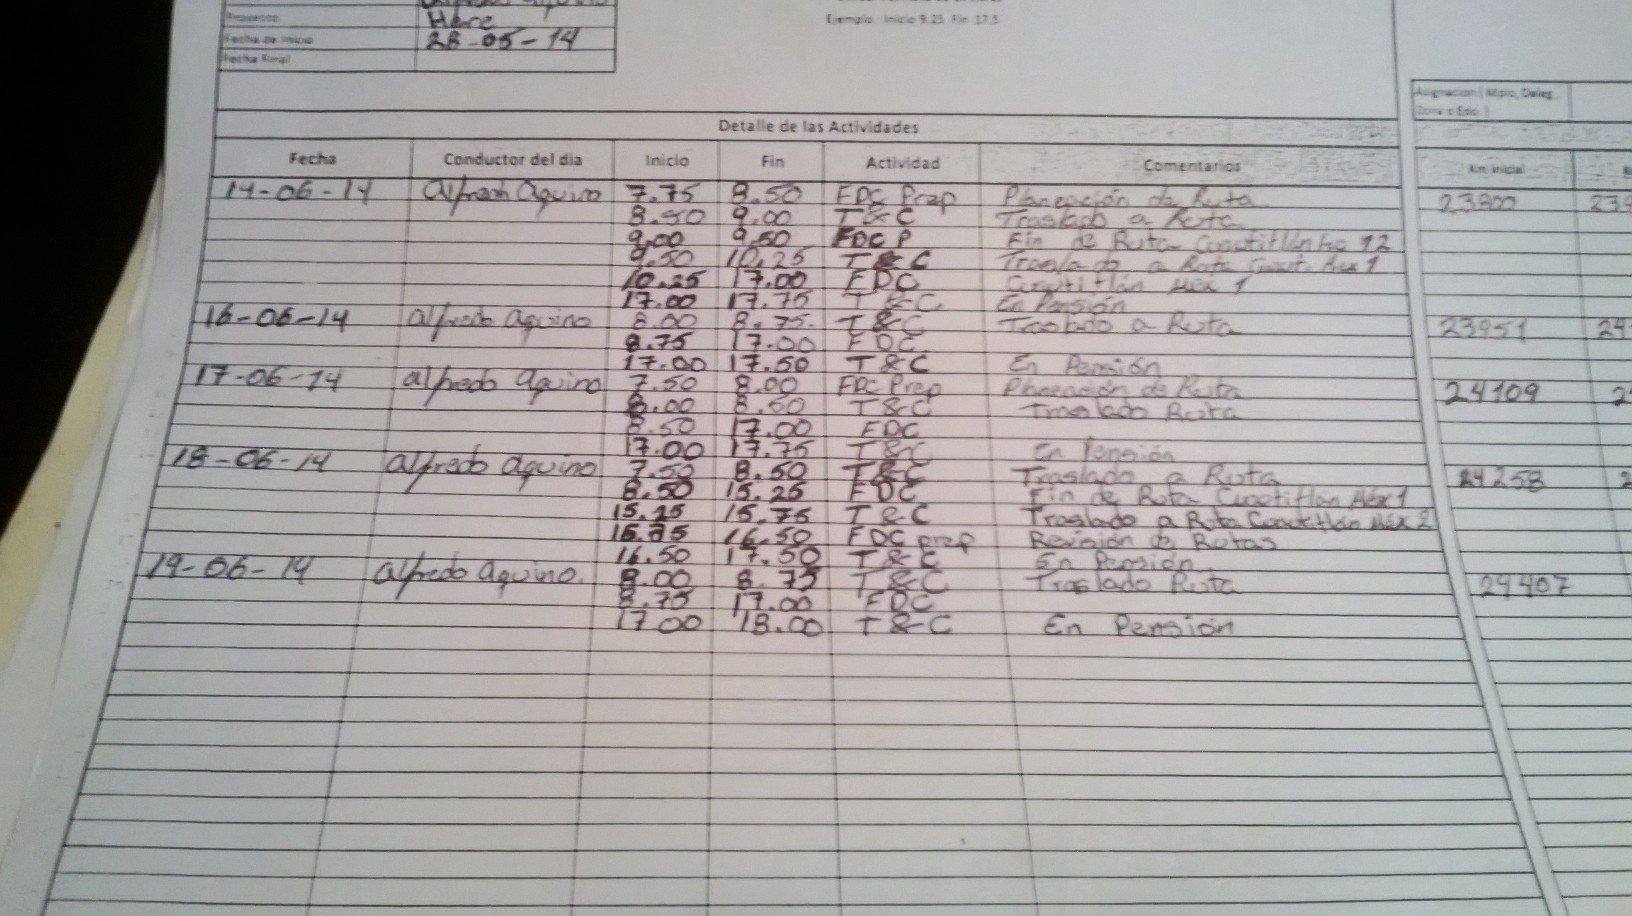 Ejemplo: Inicio 9.25 Fin 17.5
Proyecto Here
Fecha de Inicio 28-05-14
Fecha Final
Asignacion ( Mpio, Deleg,
Zona o Edo. )
Detalle de las Actividades
Fecha Conductor del dia Inicio Fin Actividad Comentarios Km inicial
14-06-14 Alfredo Aquino 7.75 8.50 FDC Prep Planeación de Ruta 23800
8.50 9.00 T&C Traslado a Ruta
9.00 9.50 FDC P Fin de Ruta Cuautitlán 12
9.50 10.25 T&C Traslado a Ruta Cuaut. Mex 1
10.25 17.00 FDC Cuautitlán Mex 1
17.00 17.75 T&C En Pensión
16-06-14 Alfredo Aquino 8.00 8.75 T&C Traslado a Ruta 23951
8.75 17.00 FDC
17.00 17.50 T&C En Pensión
17-06-14 Alfredo Aquino 7.50 8.00 FDC Prep Planeación de Ruta 24109
8.00 8.50 T&C Traslado Ruta
8.50 17.00 FDC
17.00 17.75 T&C En Pensión
18-06-14 Alfredo Aquino 7.50 8.50 T&C Traslado a Ruta 24258
8.50 15.25 FDC Fin de Ruta Cuautitlán Méx 1
15.25 15.75 T&C Traslado a Ruta Cuautitlán Méx 2
15.75 16.50 FDC prep Revisión de Rutas
16.50 17.50 T&C En Pensión
19-06-14 Alfredo Aquino. 8.00 8.75 T&C Traslado Ruta 24407
8.75 17.00 FDC
17.00 18.00 T&C En Pensión